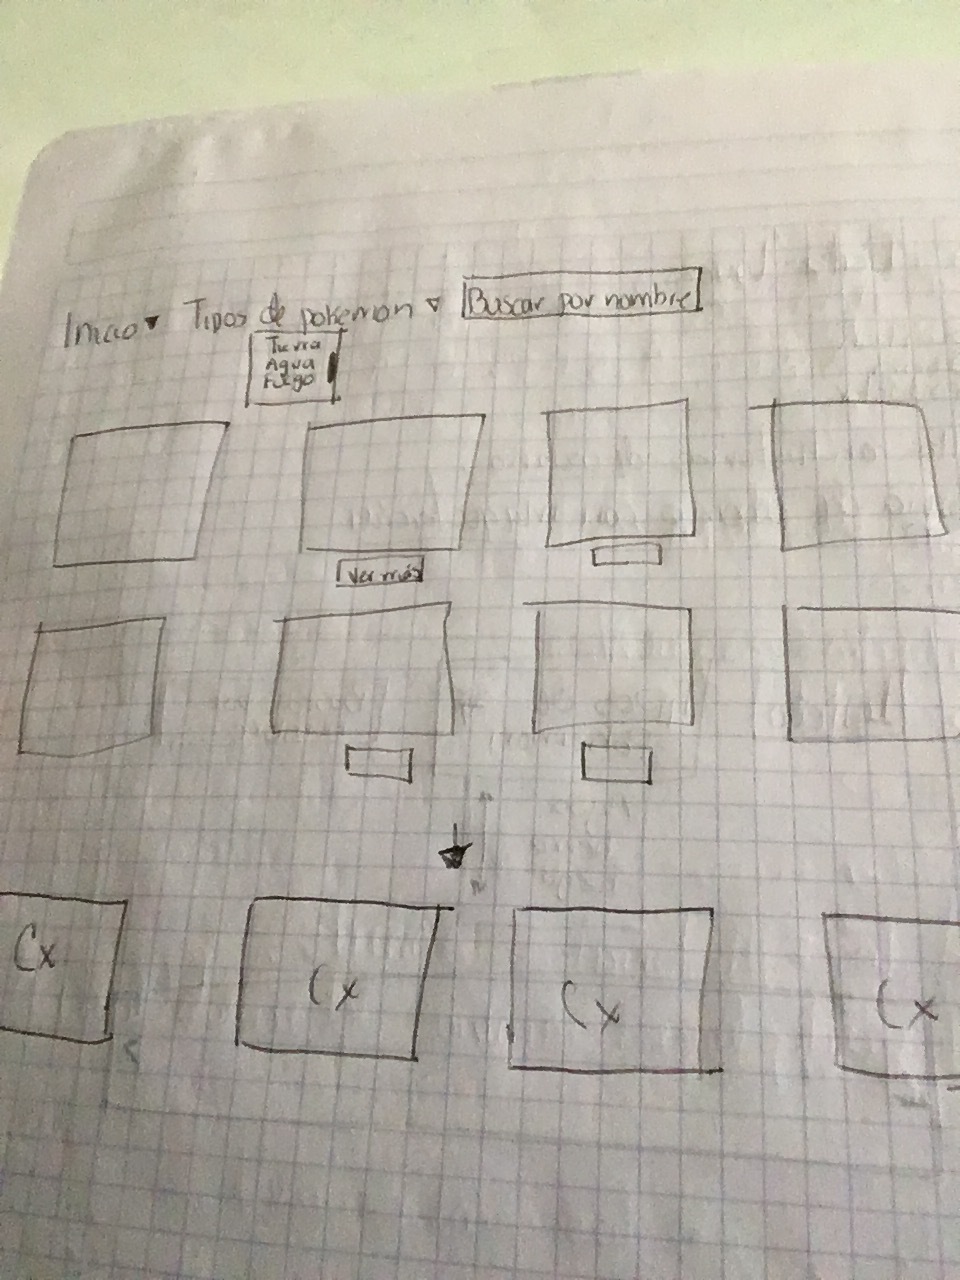 Inicio Tipos de pokemon Buscar por nombre
Tierra
Agua
Fuego
Ver más
Cx Cx Cx Cx